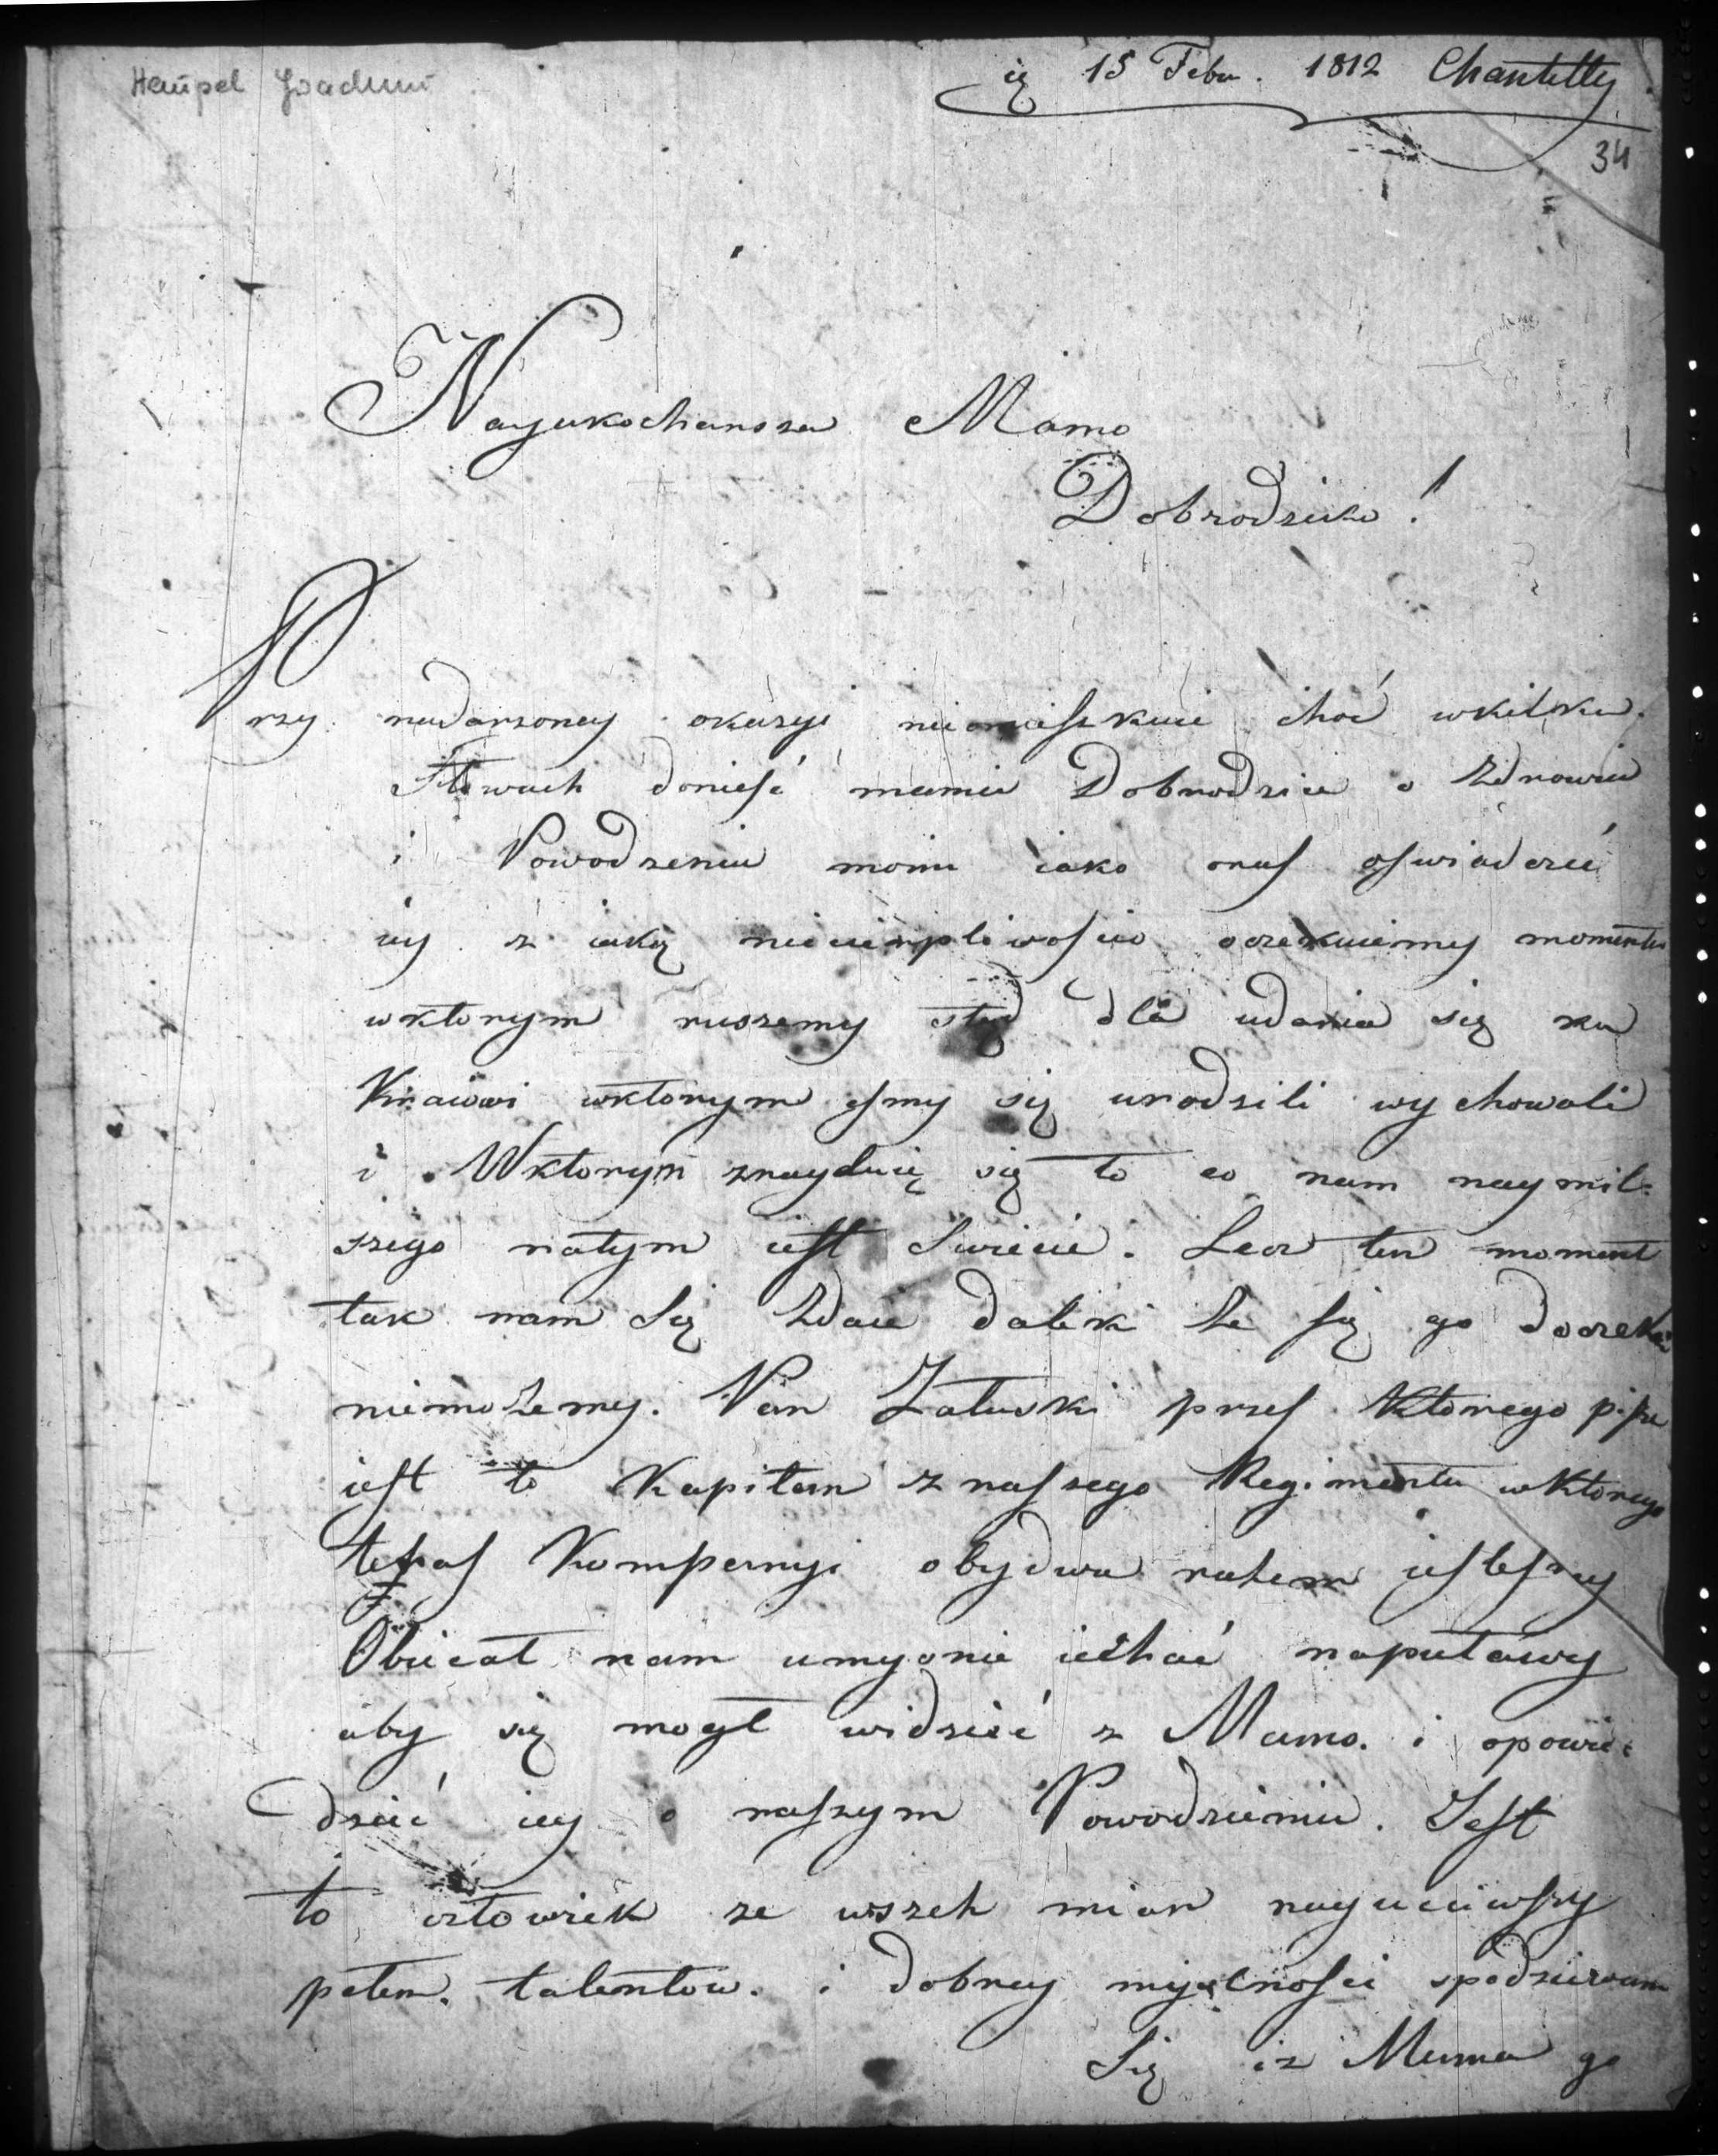 Hempel Joachim
15 Febr. 1812 Chantilly
34
Nayukochansza Mamo
Dobrodzieko!
Przy nadarzoney okazyi nieomieszkuie choć wkilku
Słowach donieść mamie Dobrodzice o Zdrowiu
i Powodzeniu moim iako oraz oswiadczić
iey z iaką niecierpliwoscio oczekuiemy momentu
wktorym ruszemy stąd dla udania się ku
Kraiowi wktorym esmy się urodzili wychowali
i Wktorym znayduię się to co nam naymil:
szego natym iest Swiecie. Lecz ten moment
tak nam Się Zdaie daleki Ze się go doczekać
niemoZemy. Pan Załuski przes Ktorego pisze
iest to Kapitan z naszego Regimentu wKtorego
teras Kompanyi obydwa razem iestesmy
Obiecał nam umyonie iechać naputawy
aby się mogł widzieć z Mamo. i opowie:
dzieć iey o naszym Powodzeniu. Jest
to człowiek ze wszech miar nayucciwszy
pełen talentow. i dobrey myslnosci spodziewam
Się iz Mama go